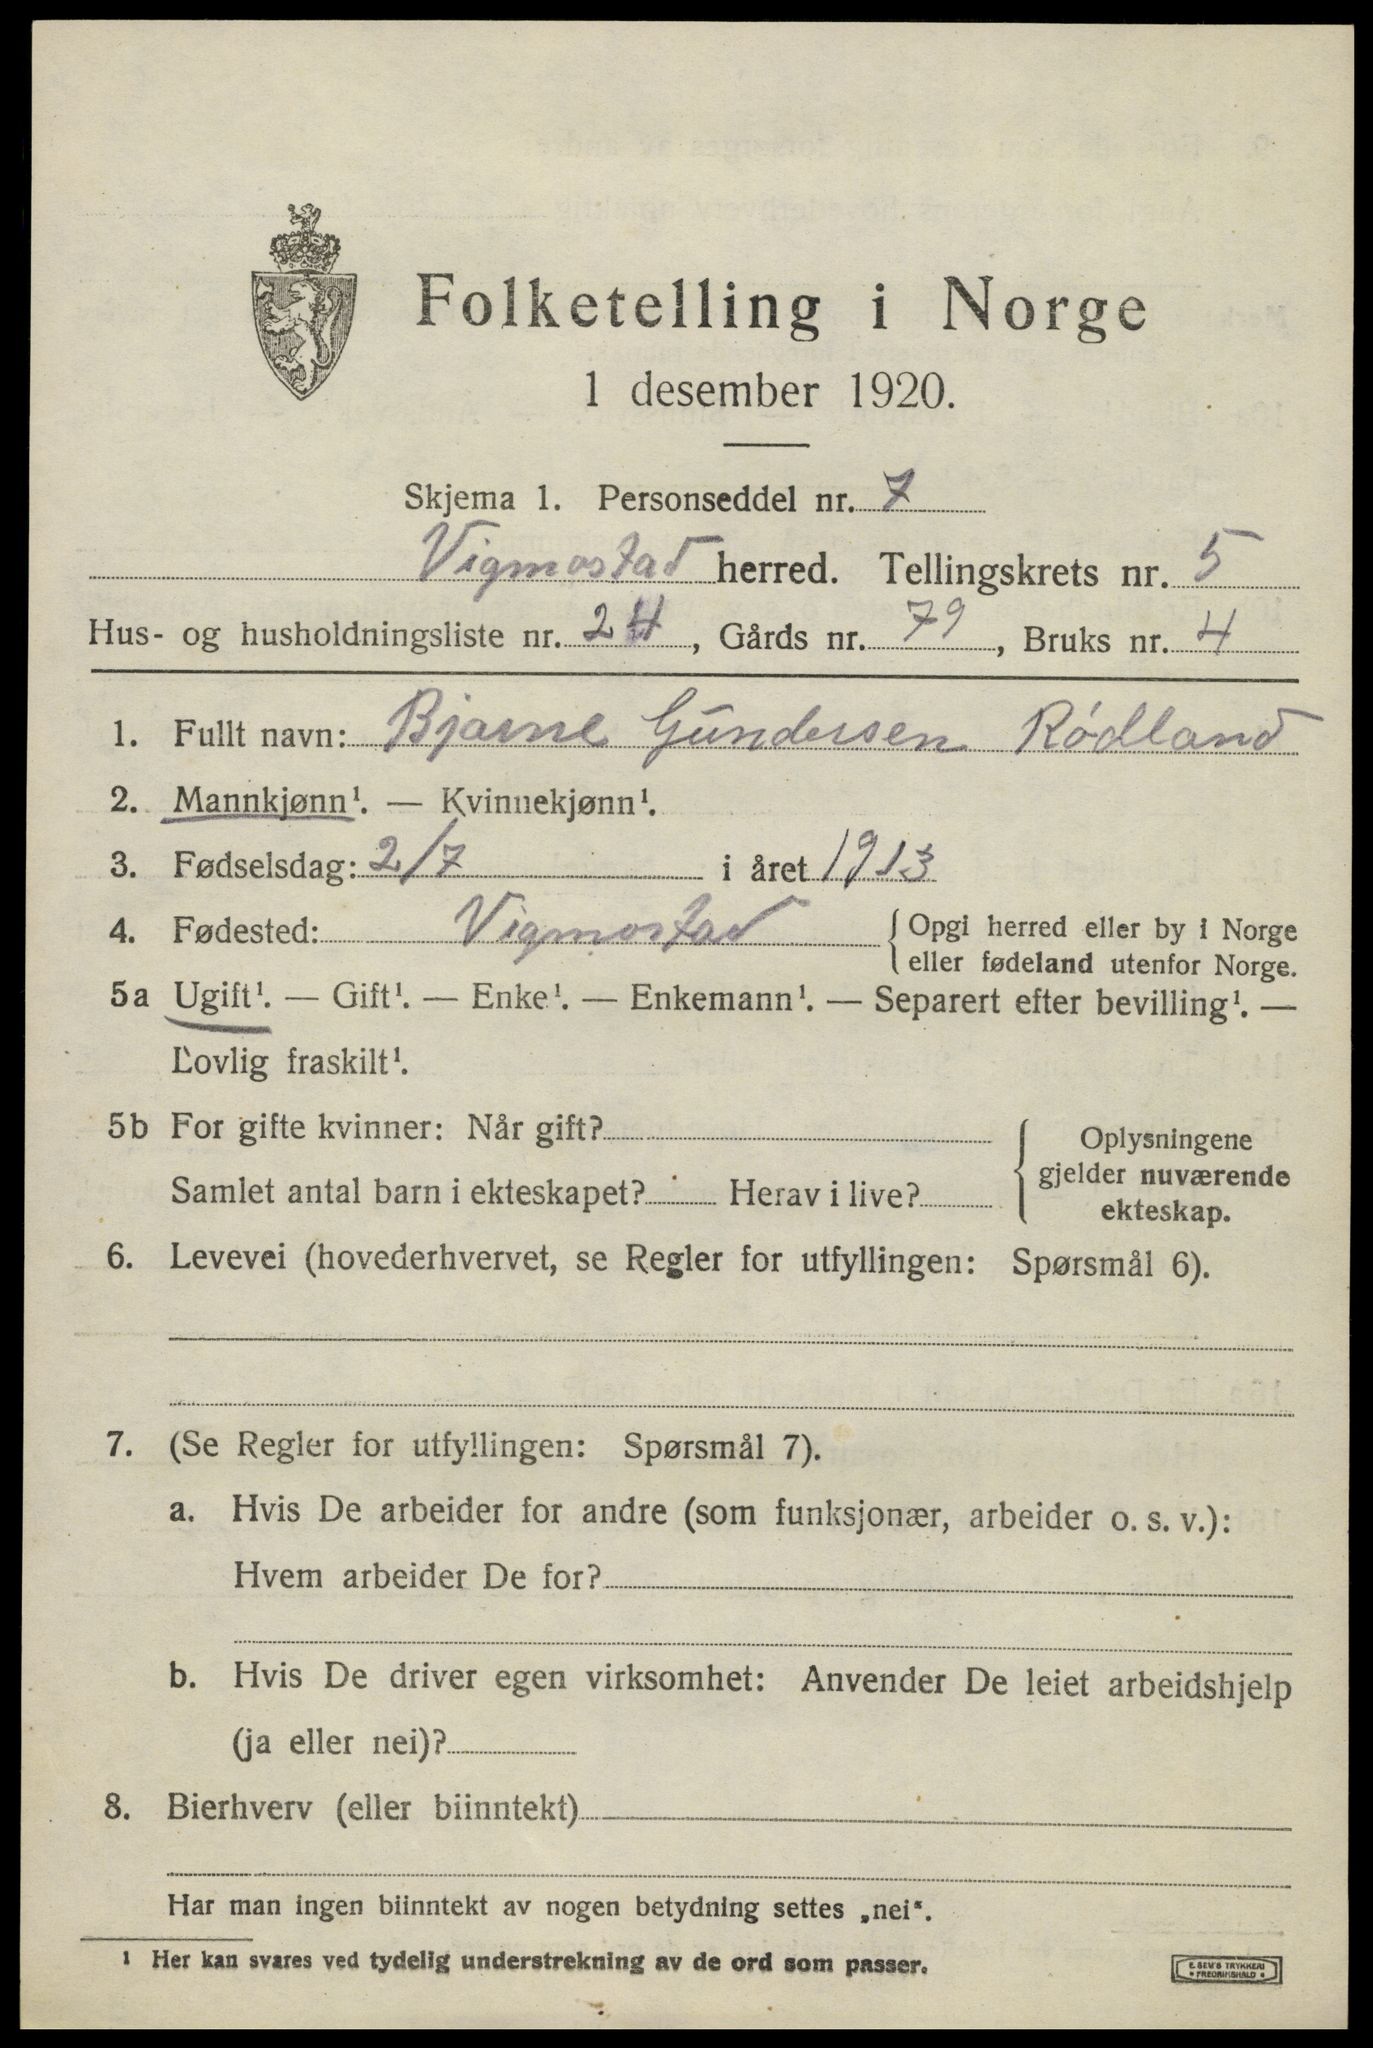 Folketelling i Norge
1 desember 1920.
Skjema 1. Personseddel nr. 7
Vigmostad herred. Tellingskrets nr. 5
Hus- og husholdningsliste nr. 24, Gårds nr. 79, Bruks nr. 4
1. Fullt navn: Bjarne Gundersen Rødland
2. Mannkjønn¹. — Kvinnekjønn¹.
3. Fødselsdag: 2/7 i året 1913
4. Fødested: Vigmostad { Opgi herred eller by i Norge
eller fødeland utenfor Norge.
5a Ugift¹. — Gift¹. — Enke¹. — Enkemann¹. — Separert efter bevilling¹. —
Lovlig fraskilt¹.
5b For gifte kvinner: Når gift?
Samlet antal barn i ekteskapet? Herav i live?
{ Oplysningene
gjelder nuværende
ekteskap.
6. Levevei (hovederhvervet, se Regler for utfyllingen: Spørsmål 6).
7. (Se Regler for utfyllingen: Spørsmål 7).
a. Hvis De arbeider for andre (som funksjonær, arbeider o. s. v.):
Hvem arbeider De for?
b. Hvis De driver egen virksomhet: Anvender De leiet arbeidshjelp
(ja eller nei)?
8. Bierhverv (eller biinntekt)
Har man ingen biinntekt av nogen betydning settes „nei“.
1 Her kan svares ved tydelig understrekning av de ord som passer.
E. SEM'S TRYKKERI
• FREDRIKSHALD •